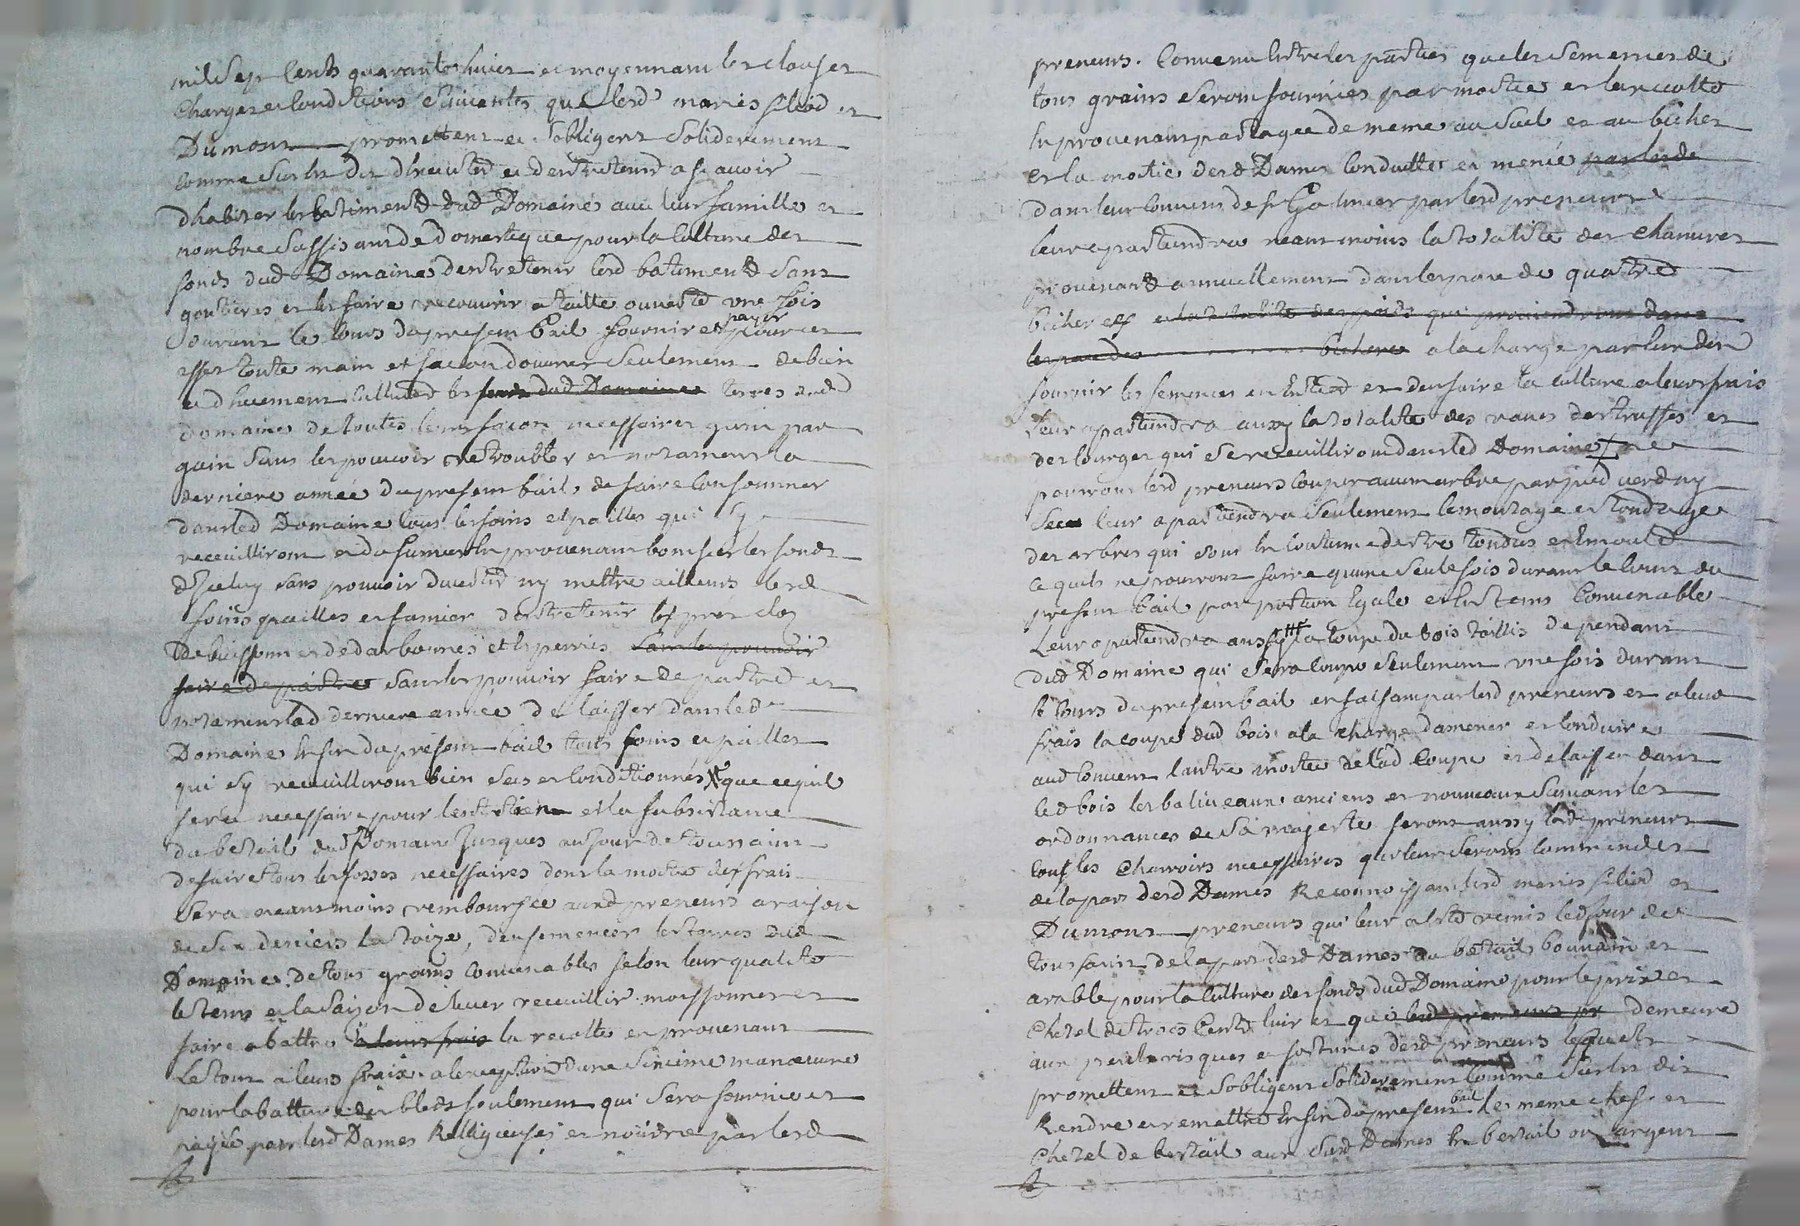 mil sept cents quarante huict et moyennant les clauses
charges et conditions suivantes que lesd mariés filiod et
Dumont promettent et sobligent soliderement
comme sur est dit dexecuter et dentretenir a scavoir
dhabiter les batiments dud Domaine avec leur famille et
nombre suffisant de domestique pour la culture des
fonds dud Domaine dentretenir lesd batiments sans
goutieres et les faire recouvrir a taille ouverte une fois
durant le cours du present bail fournir et payer pour cet
effet toute main et facon douvrier seulement de bien
et dhuement cultiver les fonds dud Domaine terres dud
domaine de toutes leurs facon necessaires gain par
gain sans les pouvoir retroubler et notament la
derniere année du present bail, de faire consommer
dans led Domaine tous les foins et pailles qui sy
receuilliront et du fumier en provenant bonifier les fonds
diceluy sans pouvoir divertir ny mettre ailleurs lesd
foins pailles et fumier dentretenir les prez clos
de buissonnerede darbonnes et esperris sans les pouvoir
faire de paitre sans les pouvoir faire de paitre et
notament lad derniere année de laisser dans led
Domaine en fin du present bail touts foins et pailles
qui sy receuilliront bien secs et conditionnés que ce quil
sera necessaire pour lentretien et la subsistance
du betail dud Domaine jusques au jour de toussaint
de faire tous les fosses necessaires dont la moitié des frais
sera neantmoins remboursée auxd preneurs a raison
de six deniers la toize, densemencer les terres dud
Domaine de tous grains convenables selon leur qualité
le tems et la saison de lever receuillir moissonner et
faire abattre a leurs frais la recolte en provenant
Le tout a leurs fraix a lexception dune sixieme manoeuvre
pour la batture des bleds seulement qui sera fournie et
payée par lesd Dames Relligieuses et nourrie par lesd
preneurs. Convenu entre les parties que les semences de
tous grains seront fournies par moitié et la recolte
en provenant partagée de meme au sael et au bicher
et la moitié desd Dames conduitte et menée par lesd
dans leur couvent de st Galmier par lesd preneurs
leur apartiendra neantmoins la totalité des chanvres
provenants annuellement dans lespace de quatre
bicherées et la totalité des poids qui proviendront dans
lespace de bicherées a la charge par eux den
fournir les semences en entier et den faire la culture a leurs frais
Leur apartiendra aussy la totalité des raves des truffes et
des courges qui se receuilliront dans led Domaine ne
pourront lesd preneurs couper aucun arbre par pied verd ny
sec leur apartiendra seulement lemontage et tondage
des arbres qui sont en coutume destre tondus et emondé
ce quils ne pourront faire quune seule fois durant le cours du
present bail par portion egale et en tems convenable
Leur apartiendra aussy la coupe du bois taillis dependant
dud Domaine qui sera coupé seulement une fois durant
le cours du present bail en faisant par lesd preneurs et a leur
frais la coupe dud bois a la charge damener et conduire
aud couvent lautre moitié de lad coupe et de laisser dans
led bois les baliveaux anciens et nouveaux suivant les
ordonnances de Sa majesté feront aussy lesd preneurs
tous les charrois necessaires qui leur seront commendés
de la part desd Dames Reconnoissant lesd mariés filiod et
Dumont preneurs qui leur a été remis led jour de
toussaint de la part desd Dames du betail bouvain et
arable pour la culture des fonds dud Domaine pour le prix et
chetel de trois cents luir et qui lesd preneurs pr demeure
aux perils risques et fortunes desd preneurs lesquels
promettent et sobligent soliderement comme sur est dit
Rendre et remettre en fin du present bail les meme chef et
chetel de bestail aux susd Dames en bestail ou argent